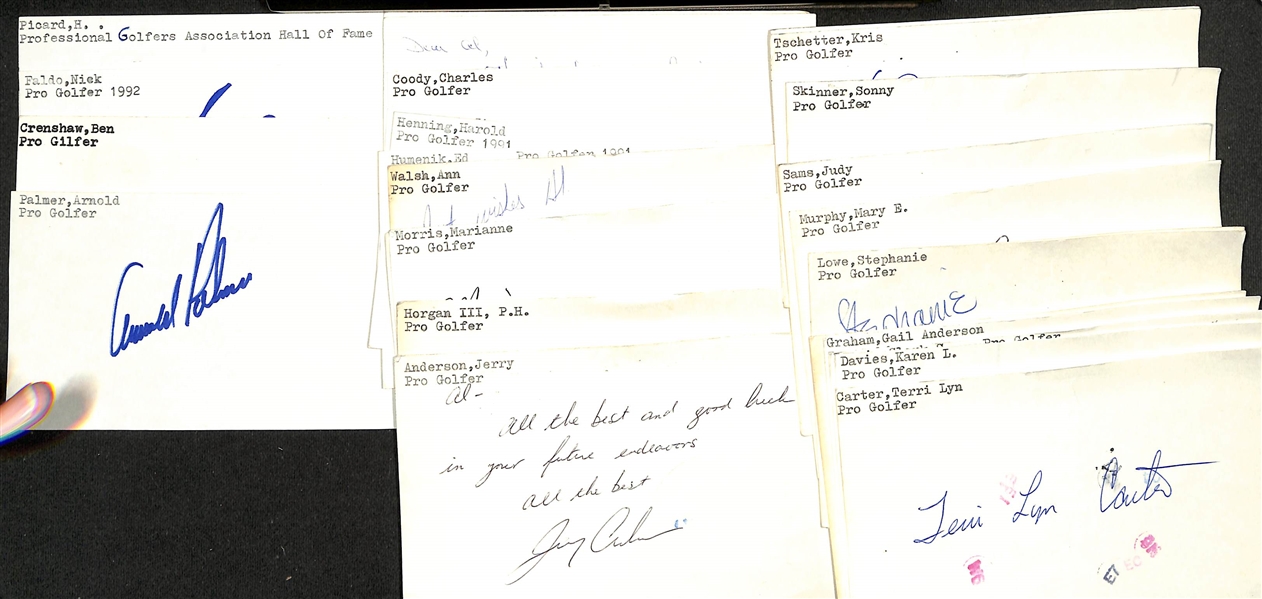 Picard,H. .
Professional Golfers Association Hall Of Fame
Faldo,Nick
Pro Golfer 1992
Crenshaw,Ben
Pro Gilfer
Palmer,Arnold
Pro Golfer
Arnold Palmer
Dear Al,
Coody,Charles
Pro Golfer
Henning,Harold
Pro Golfer 1991
Humenik,Ed Pro Golfer 1991
Walsh,Ann
Pro Golfer
wishes Al
Morris,Marianne
Pro Golfer
Horgan III, P.H.
Pro Golfer
Anderson,Jerry
Pro Golfer
Al-
All the best and good luck
in your future endeavors
All the best
Jerry Anderson
Tschetter,Kris
Pro Golfer
Skinner,Sonny
Pro Golfer
Sams,Judy
Pro Golfer
Murphy,Mary E.
Pro Golfer
Lowe,Stephanie
Pro Golfer
Stephanie
Graham,Gail Anderson
Pro Golfer
Davies,Karen L.
Pro Golfer
Carter,Terri Lyn
Pro Golfer
Terri Lyn Carter